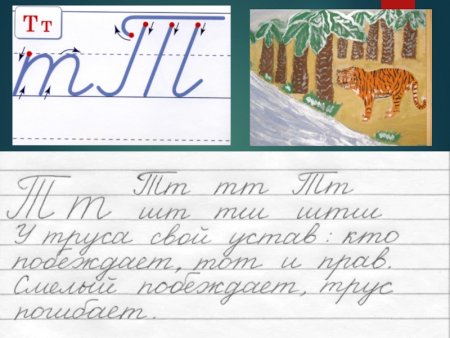 Тт
т Т
Т т Тт тт Тт
шт тш штш
У труса свой устав: кто
побеждает, тот и прав.
Смелый побеждает, трус
погибает.